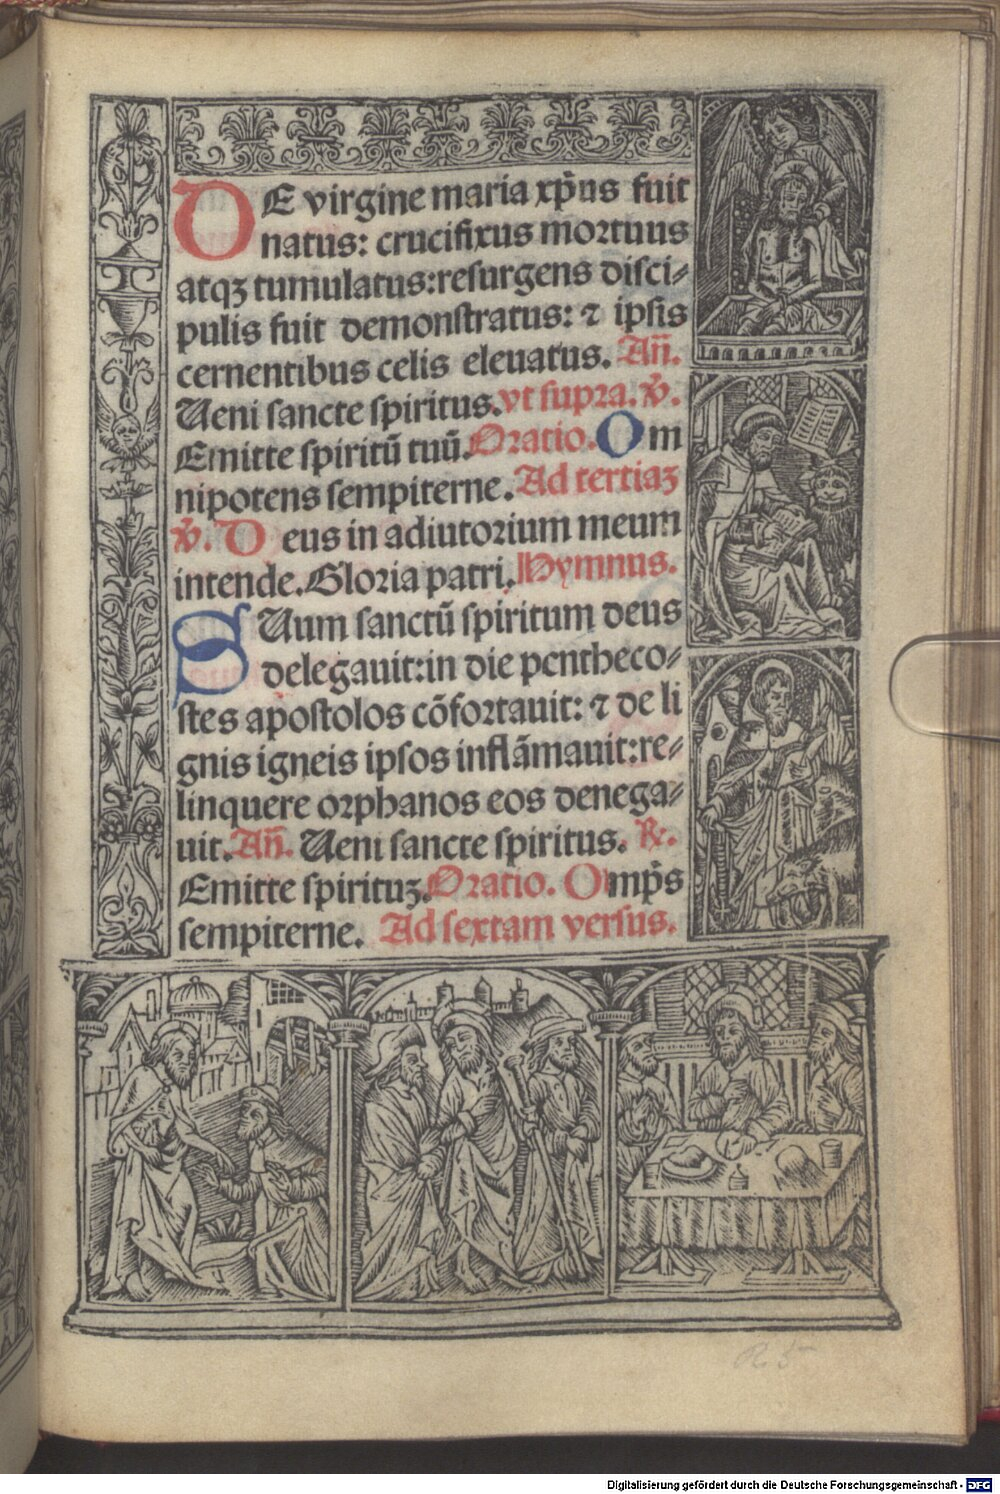 DE virgine maria xp̄us fuit
natus: crucifixus mortuus
atqꝫ tumulatus:resurgens disci⸗
pulis fuit demonstratus: ⁊ ipsis
cernentibus celis eleuatus. Añ.
Ueni sancte spiritus.vt supra. ℣.
Emitte spiritū tuū.Oratio.Om
nipotens sempiterne.Ad tertiaꝫ
℣. Deus in adiutorium meum
intende.Gloria patri.Hymnus.
SUum sanctū spiritum deus
delegauit:in die pentheco⸗
stes apostolos cōfortauit: ⁊ de li
gnis igneis ipsos inflāmauit:re⸗
linquere orphanos eos denega⸗
uit.Añ. Ueni sancte spiritus. ℟.
Emitte spirituꝫ.Oratio. Omp̄s
sempiterne. Ad sextam versus.
R. 5
Digitalisierung gefördert durch die Deutsche Forschungsgemeinschaft - DFG